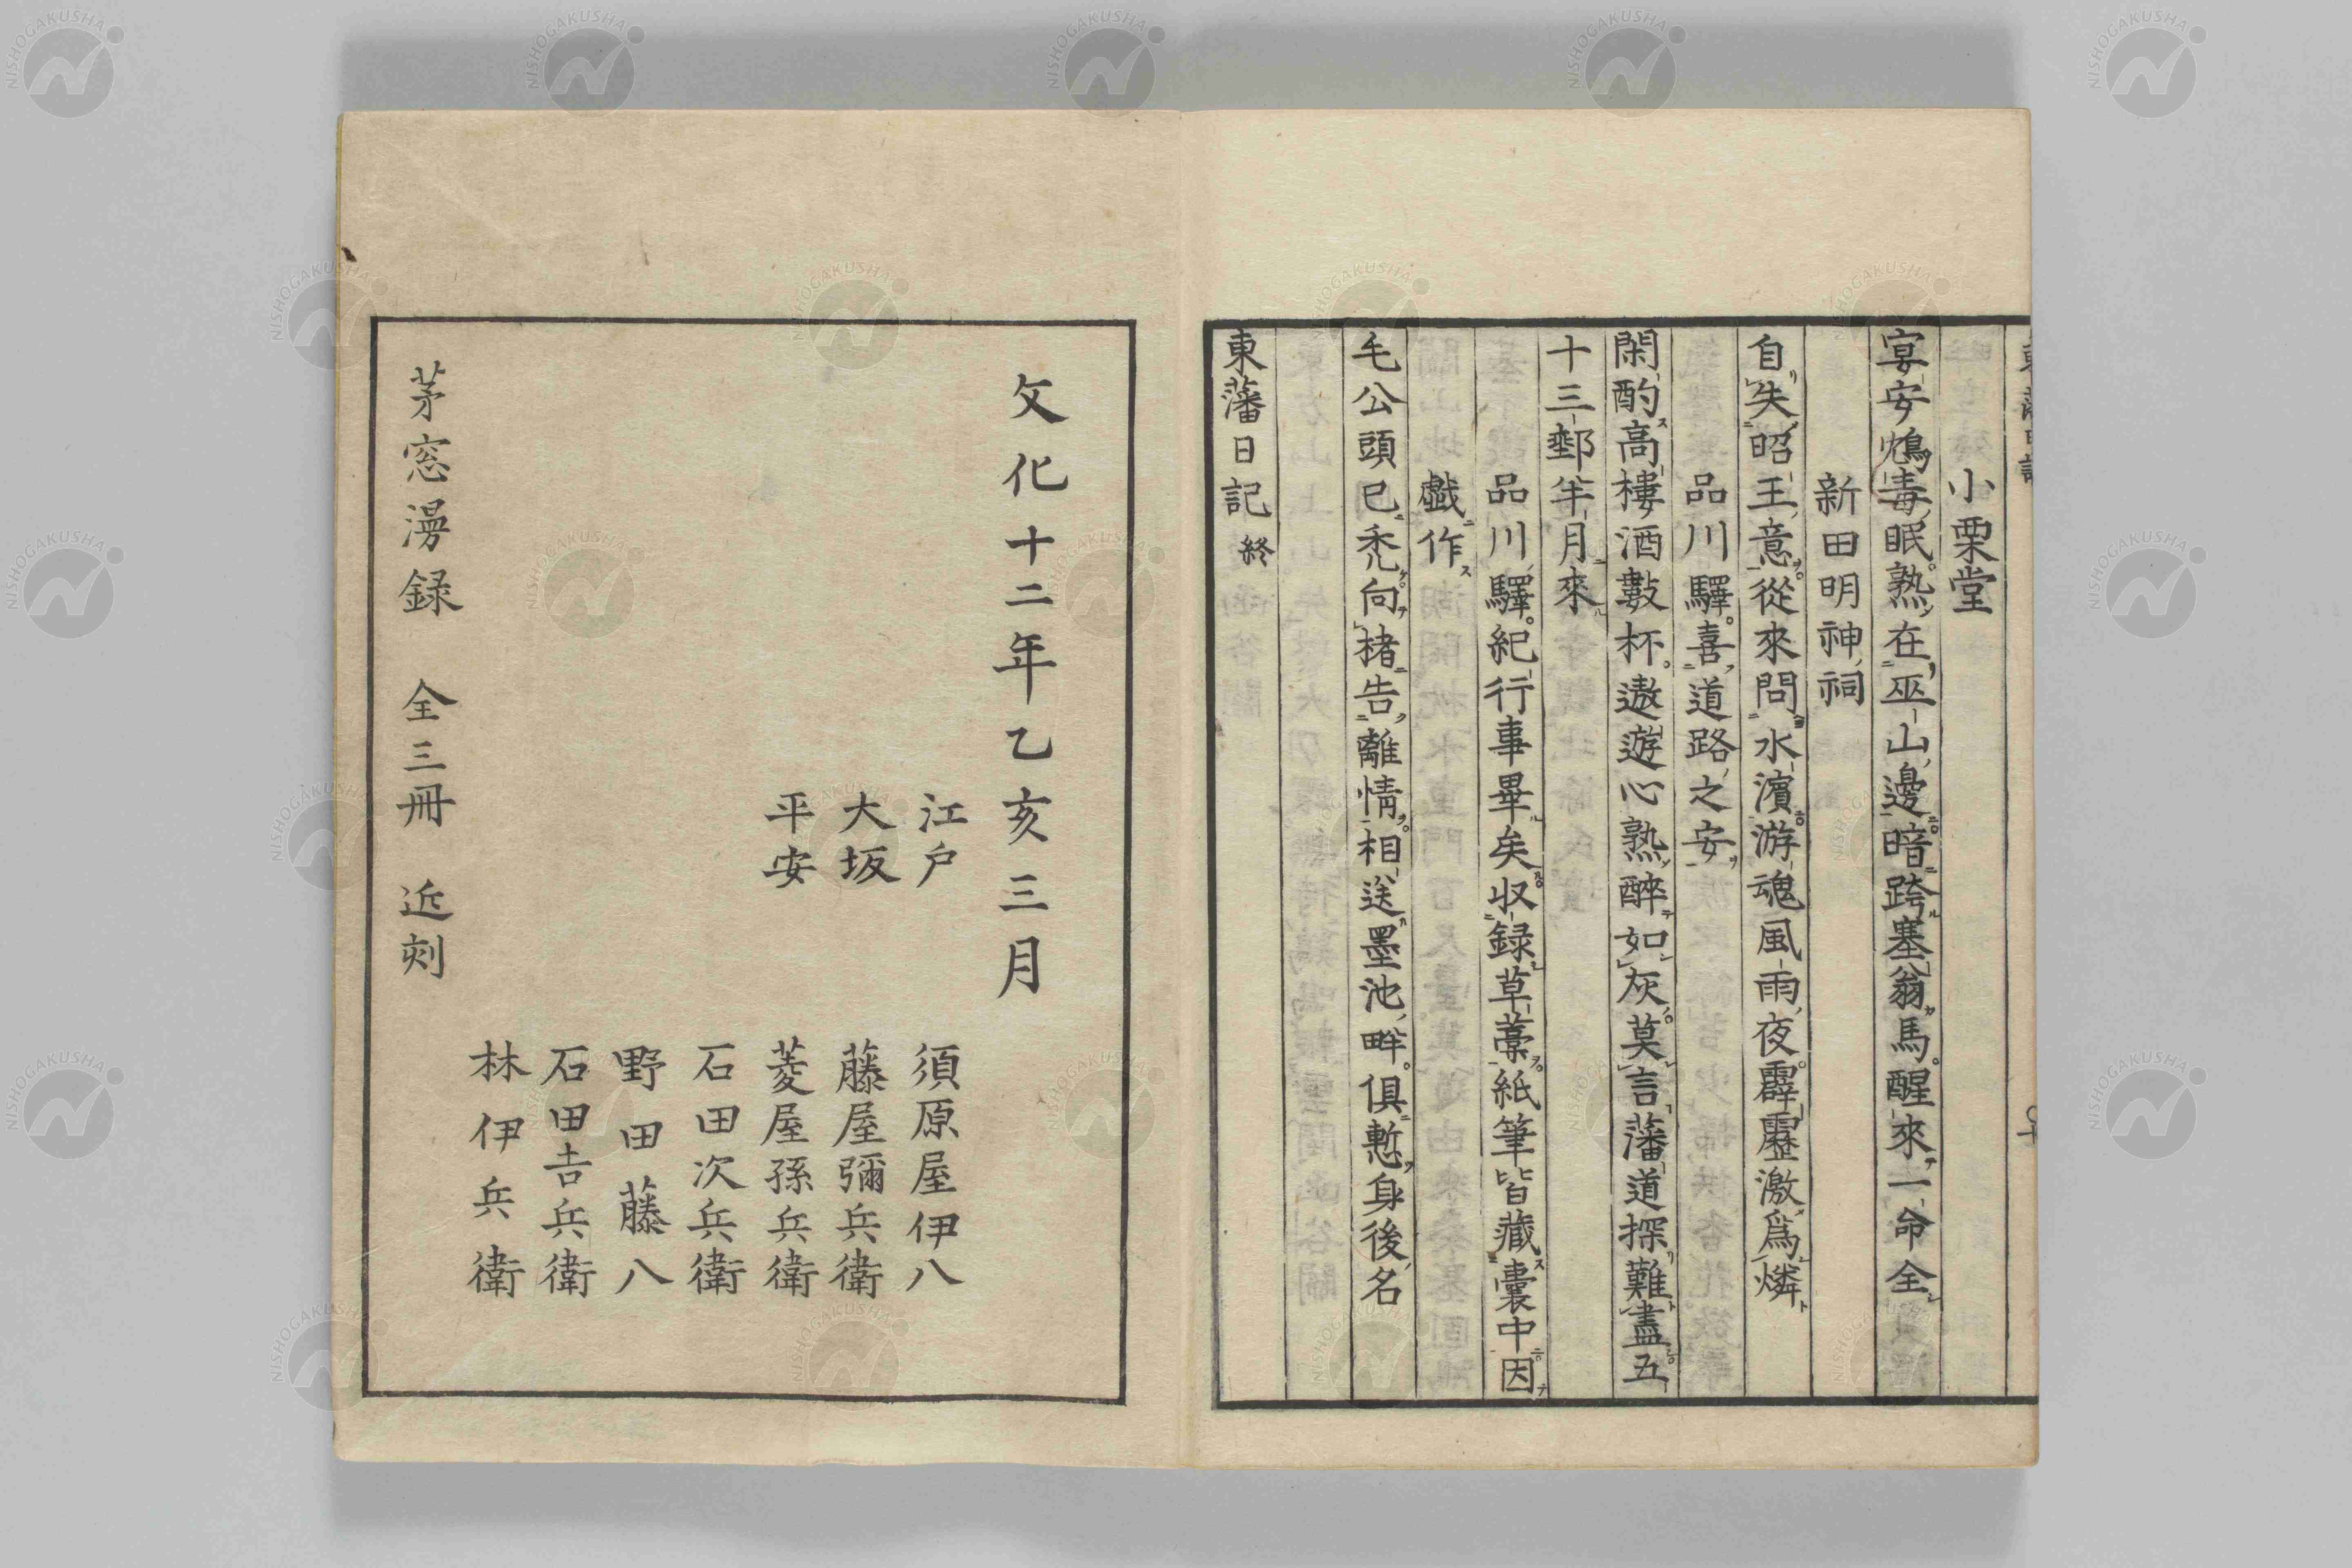 小栗堂
宴安鴆毒眠熟在巫山邊暗跨塞翁馬醒來一命全
新田明神祠
自失昭王意從來問水濱游魂風雨夜霹靂激爲燐
品川驛喜道路之安
閑酌高樓酒數杯遨遊心熟醉如灰莫言藩道探難盡五
十三郵半月來
品川驛紀行事畢矣収録草藁紙筆皆藏囊中因
戯作
毛公頭已禿向楮告離情相送墨池畔俱慙身後名
東藩日記終
文化十二年乙亥三月
江戸 須原屋伊八
大坂 藤屋彌兵衛
平安 菱屋孫兵衛
石田次兵衛
野田藤八
石田吉兵衛
林伊兵衛
茅窓漫録 全三冊 近刻
NISHOGAKUSHA